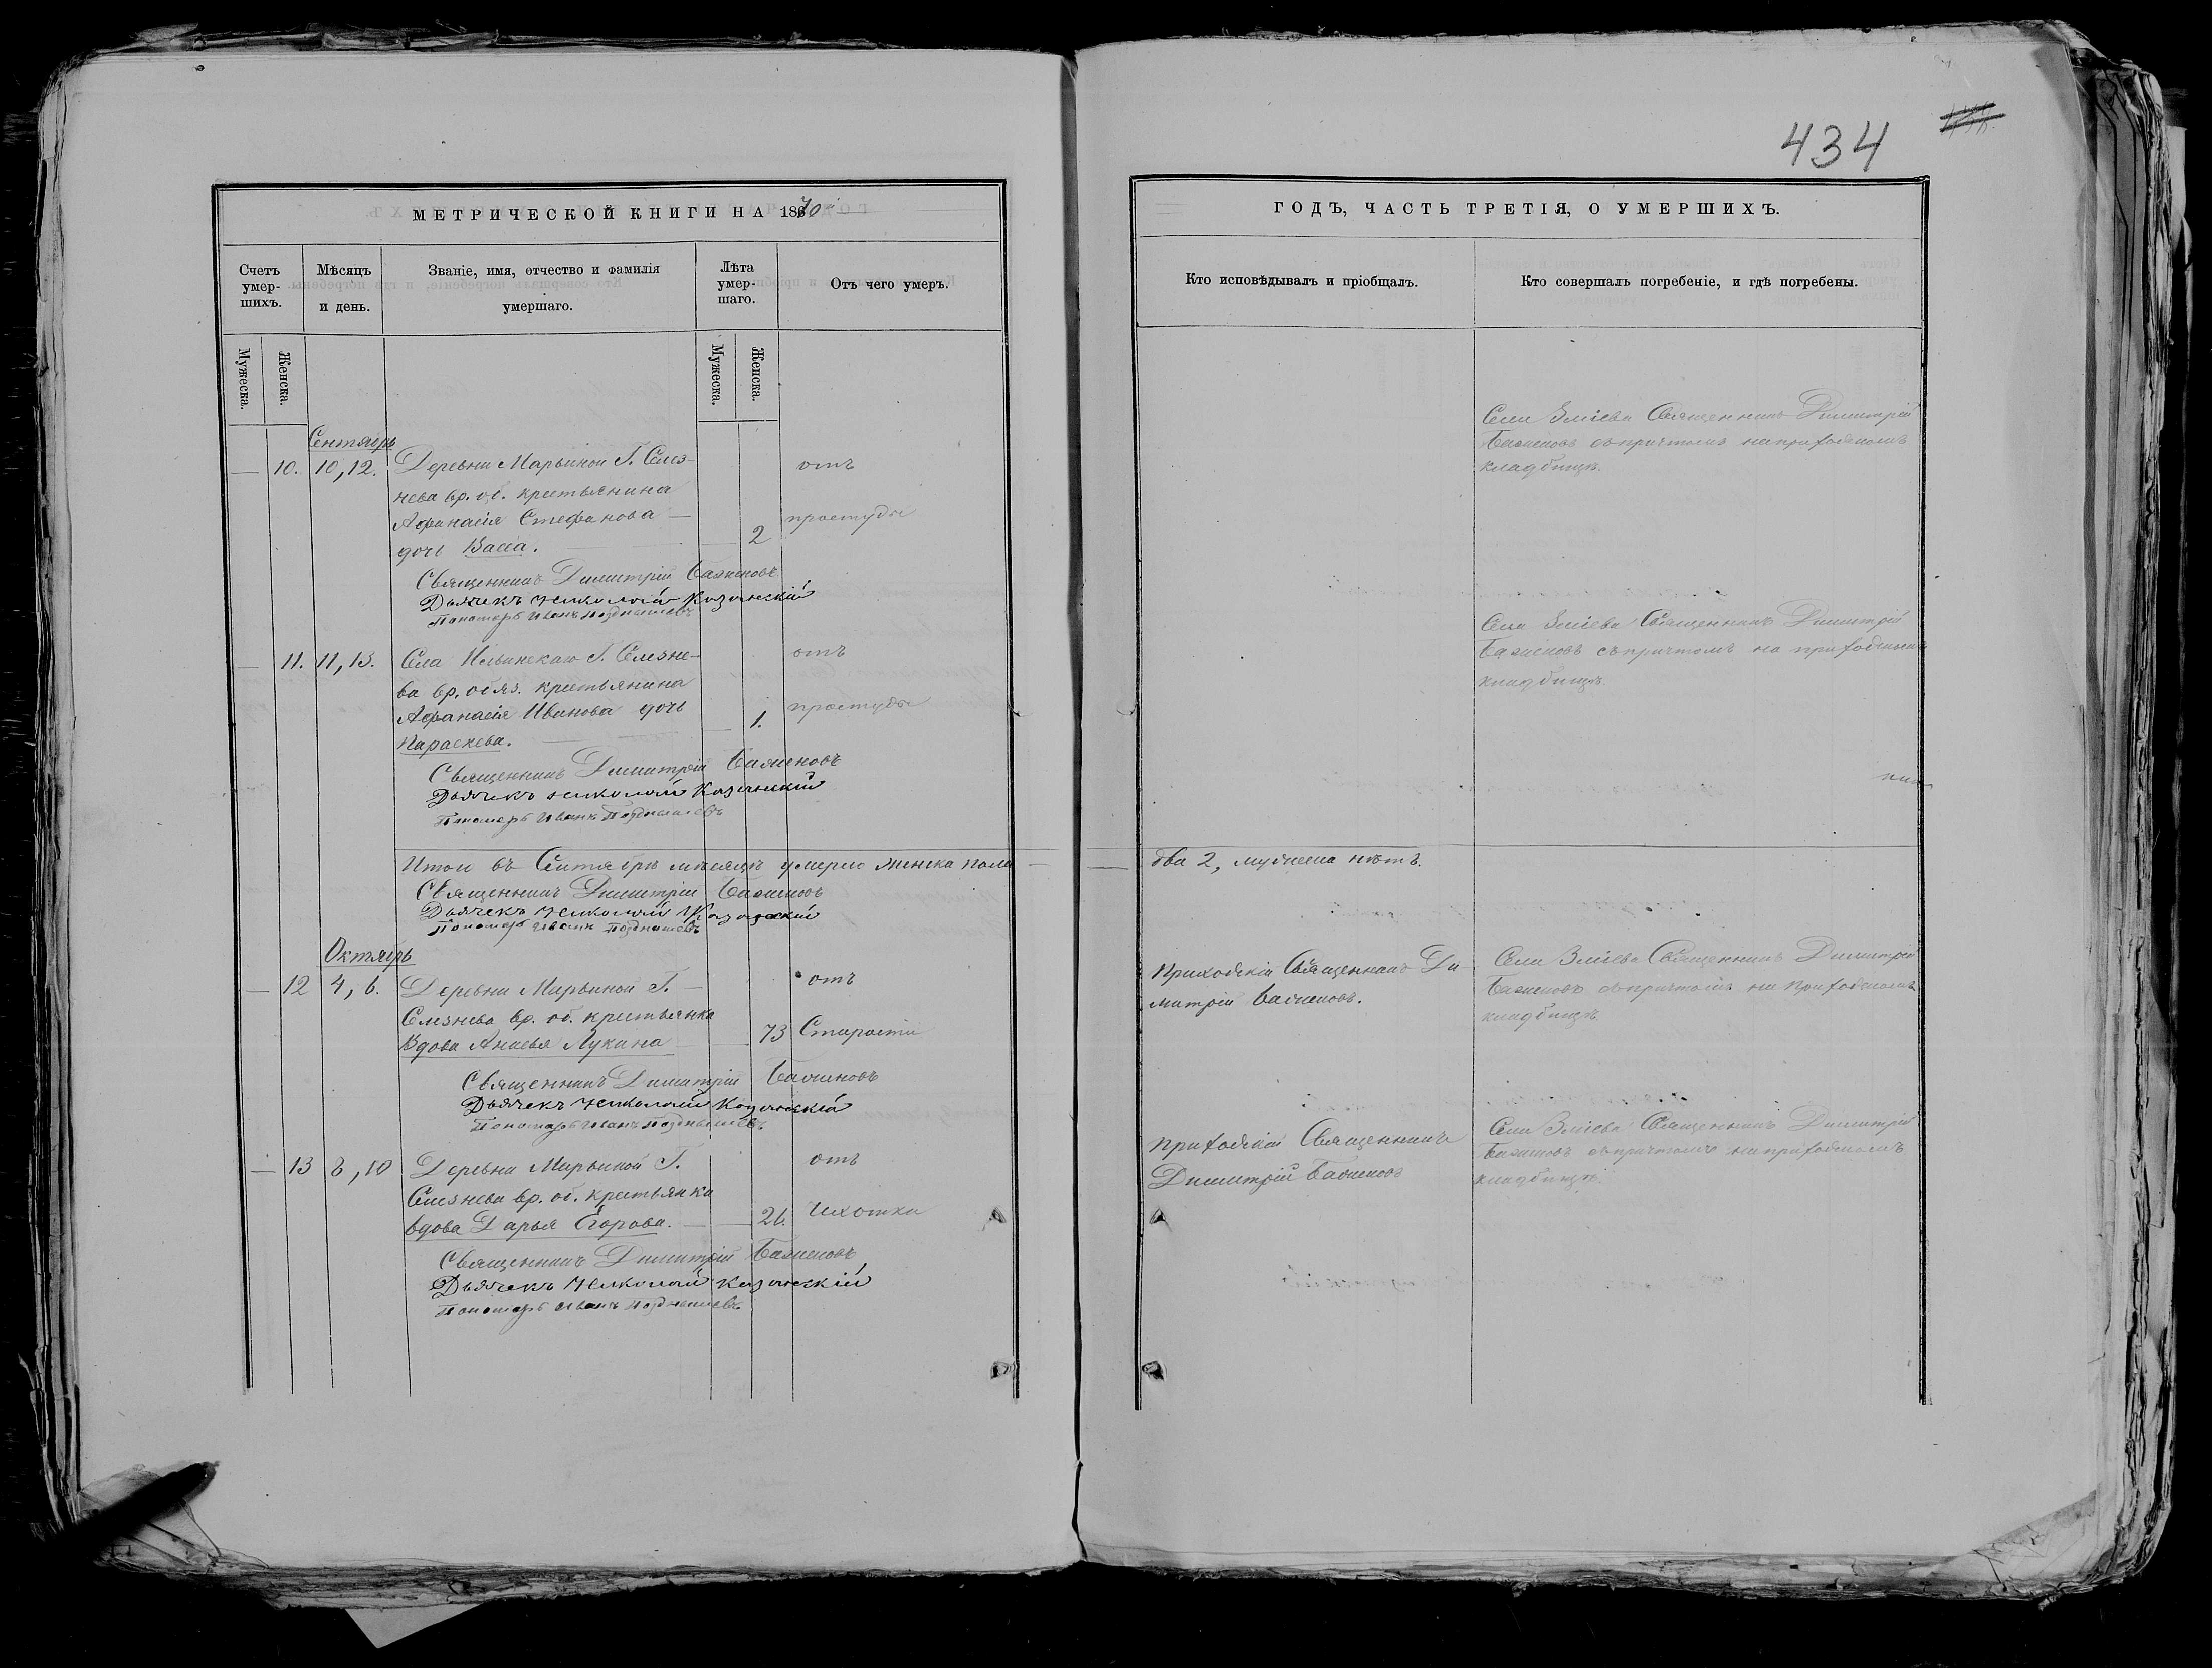 МЕТРИЧЕСКОЙ КНИГИ НА 1870й
Счетъ умер-шихъ.
Мѣсяцъ и день.
Званіе, имя, отчество и фамилія умершаго.
Лѣта умер-шаго.
Отъ чего умеръ.
Мужеска.
Женска.
Мужеска.
Женска.
Сентябрь
— 10. 10, 12. Деревни Марьиной Г. Слез- отъ
нева вр. об. крестьянина
Афанасія Стефанова — простуды
дочь Васса. 2
Священникъ Димитрій Баженовъ
Дьячекъ Николай Казанскій
Пономарь Иванъ Позднышевъ
— 11. 11, 13. Села Ильинскаго Г. Слезне- отъ
ва вр. обяз. крестьянина
Афанасія Иванова дочь 1. простуды
Параскева.
Священникъ Димитрій Баженовъ
Дьячекъ Николай Казанскій
Пономарь Иванъ Позднышевъ
Итого въ Сентябрѣ мѣсяцѣ умерло женска пола —
Священникъ Димитрій Баженовъ
Дьячекъ Николай Казанскій
Пономарь Иванъ Позднышевъ
Октябрь
— 12 4, 6. Деревни Марьиной Г. — отъ
Слезнева вр. об. крестьянка
Вдова Анисья Лукина 73 Старости
Священникъ Димитрій Баженовъ
Дьячекъ Николай Казанскій
Пономарь Иванъ Позднышевъ
— 13 8, 10 Деревни Марьиной Г. отъ
Слезнева вр. об. крестьянка
вдова Дарья Егорова. 26. Чахотки
Священникъ Димитрій Баженовъ
Дьячекъ Николай Казанскій
Пономарь Иванъ Позднышевъ
434
ГОДЪ, ЧАСТЬ ТРЕТІЯ, О УМЕРШИХЪ.
Кто исповѣдывалъ и пріобщалъ.
Кто совершалъ погребеніе, и гдѣ погребены.
Села Зміева Священникъ Димитрій
Баженовъ съ причтомъ на приходскомъ
кладбищѣ.
Села Зміева Священникъ Димитрій
Баженовъ съ причтомъ на приходскомъ
кладбищѣ.
— два 2, мужеска нѣтъ.
Приходскій Священникъ Ди-
митрій Баженовъ.
Села Зміева Священникъ Димитрій
Баженовъ съ причтомъ на приходскомъ
кладбищѣ.
Приходскій Священникъ
Димитрій Баженовъ
Села Зміева Священникъ Димитрій
Баженовъ съ причтомъ на приходскомъ
кладбищѣ.